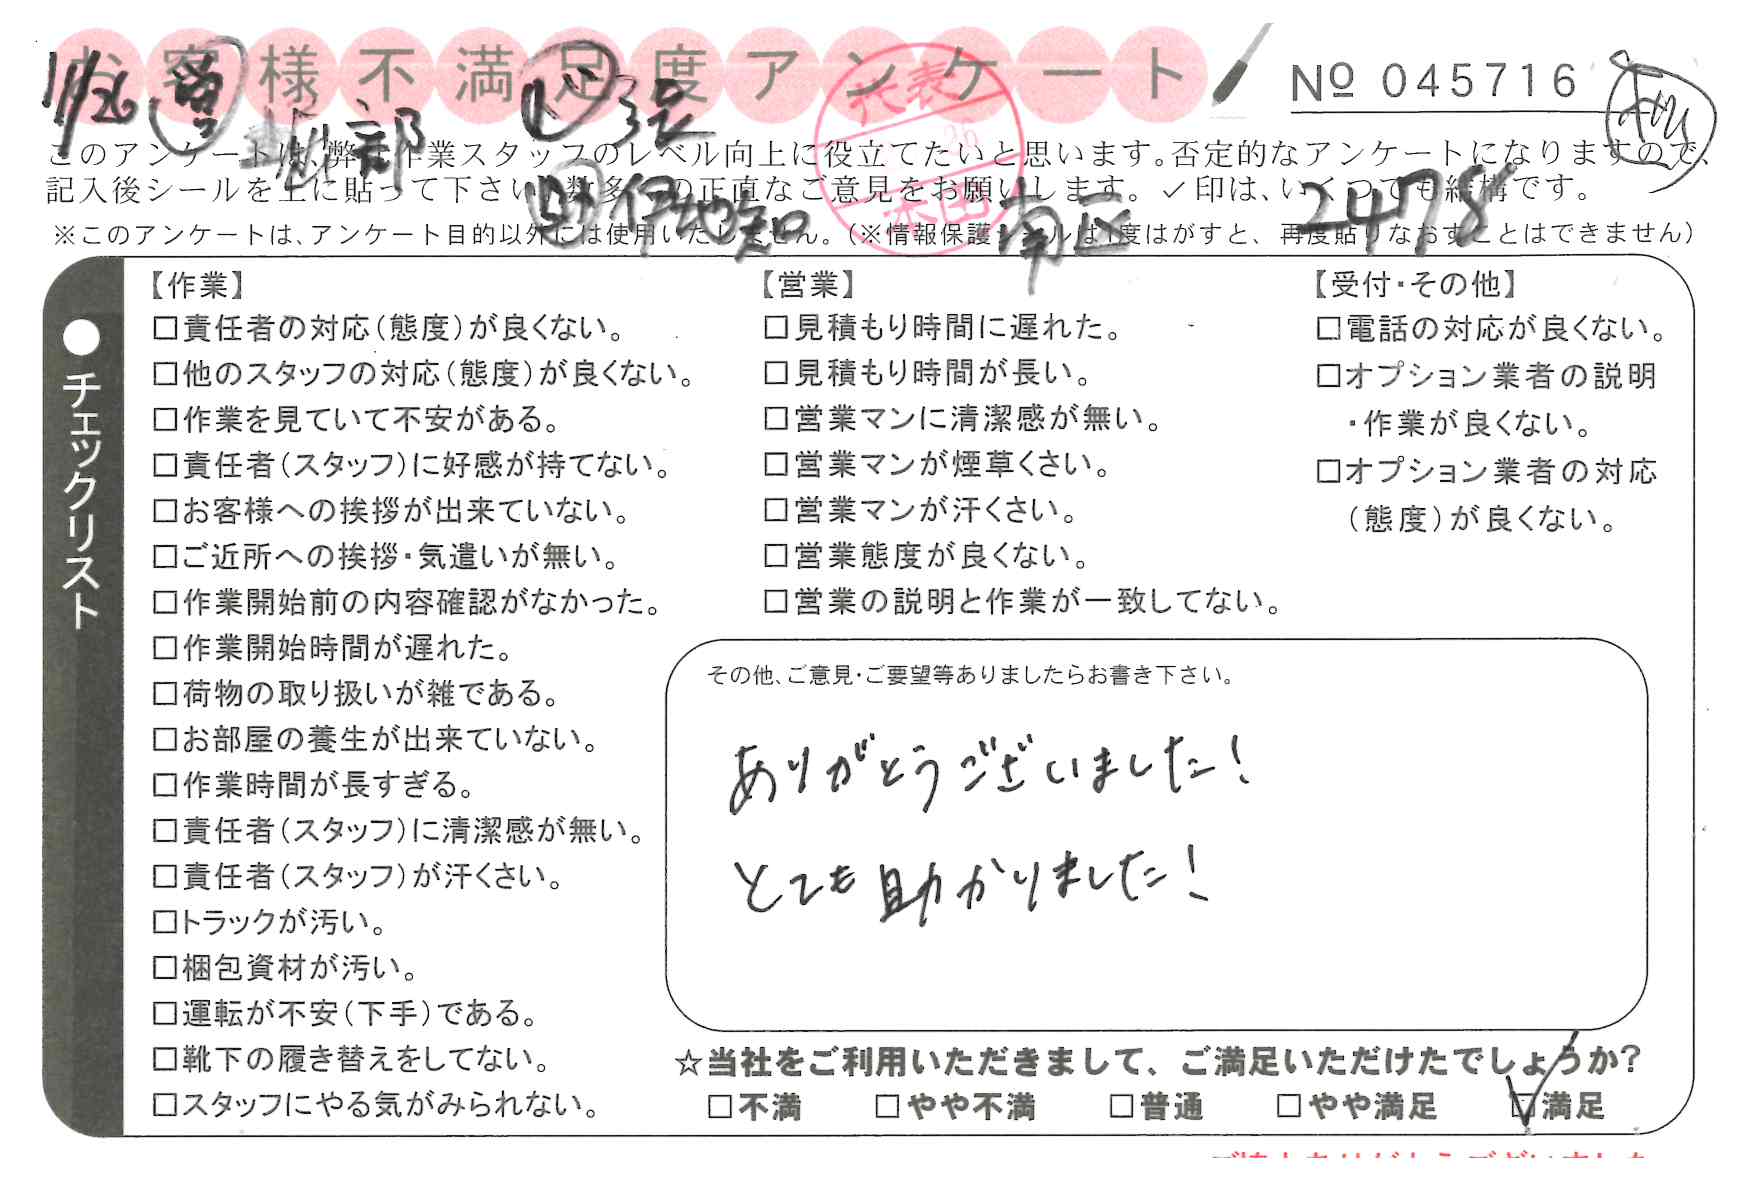 お客様不満足度アンケート
№ 045716
11/26
このアンケートは、弊社作業スタッフのレベル向上に役立てたいと思います。否定的なアンケートになりますので、
記入後シールを上に貼って下さい。数多くの正直なご意見をお願いします。✓印は、いくつでも結構です。
伊地知 南区 2478
※このアンケートは、アンケート目的以外には使用いたしません。(※情報保護シールは1度はがすと、再度貼りなおすことはできません)
代表
●チェックリスト
【作業】
□責任者の対応(態度)が良くない。
□他のスタッフの対応(態度)が良くない。
□作業を見ていて不安がある。
□責任者(スタッフ)に好感が持てない。
□お客様への挨拶が出来ていない。
□ご近所への挨拶・気遣いが無い。
□作業開始前の内容確認がなかった。
□作業開始時間が遅れた。
□荷物の取り扱いが雑である。
□お部屋の養生が出来ていない。
□作業時間が長すぎる。
□責任者(スタッフ)に清潔感が無い。
□責任者(スタッフ)が汗くさい。
□トラックが汚い。
□梱包資材が汚い。
□運転が不安(下手)である。
□靴下の履き替えをしてない。
□スタッフにやる気がみられない。
【営業】
□見積もり時間に遅れた。
□見積もり時間が長い。
□営業マンに清潔感が無い。
□営業マンが煙草くさい。
□営業マンが汗くさい。
□営業態度が良くない。
□営業の説明と作業が一致してない。
【受付・その他】
□電話の対応が良くない。
□オプション業者の説明
・作業が良くない。
□オプション業者の対応
(態度)が良くない。
その他、ご意見・ご要望等ありましたらお書き下さい。
ありがとうございました!
とても助かりました!
☆当社をご利用いただきまして、ご満足いただけたでしょうか?
□不満 □やや不満 □普通 □やや満足 ☑満足